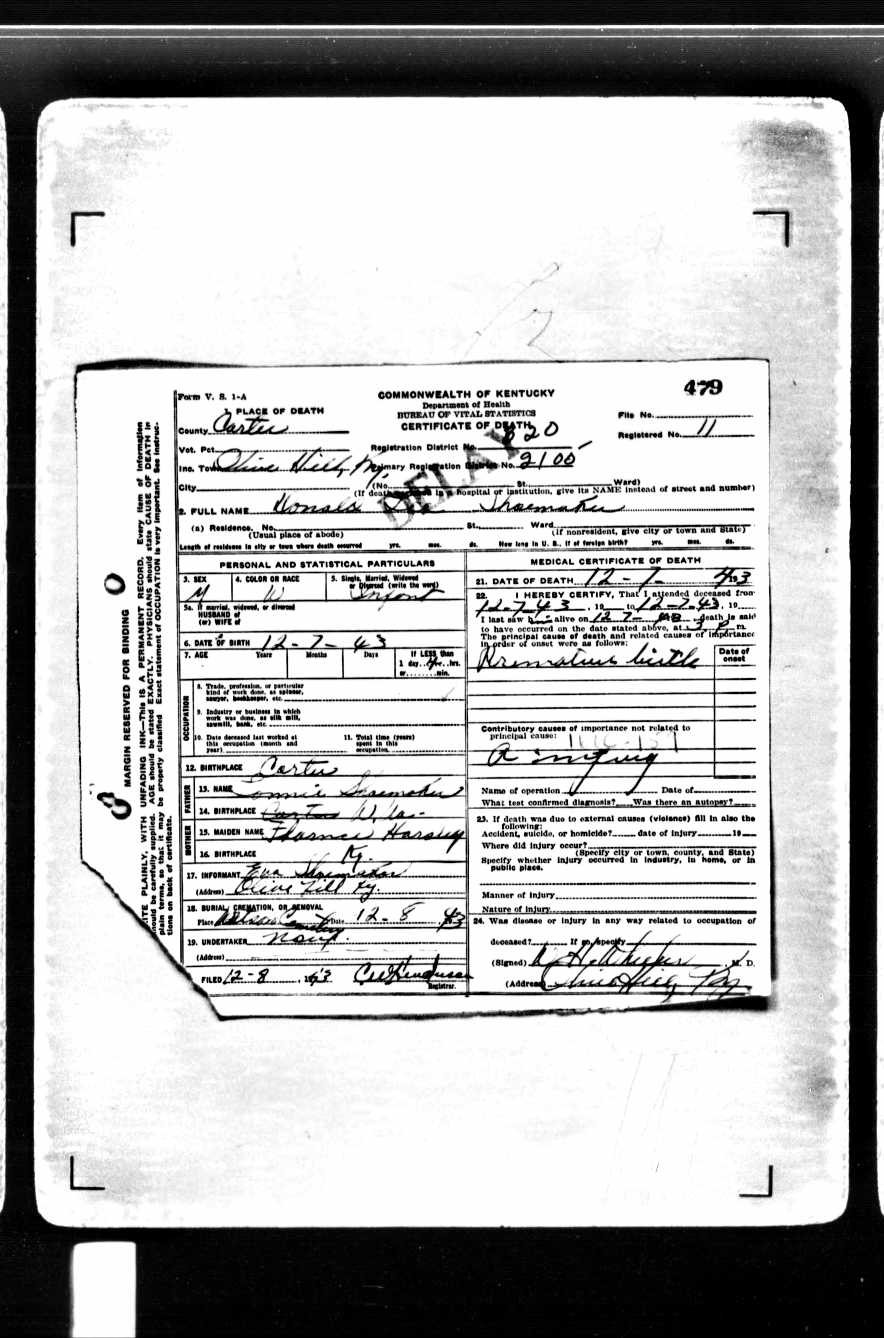 479
Form V. S. 1-A
COMMONWEALTH OF KENTUCKY
Department of Health
BUREAU OF VITAL STATISTICS
CERTIFICATE OF DEATH
DELAY
File No.
Registered No. 11
1 PLACE OF DEATH
County Carter
Vot. Pct.
Registration District No. 620
Inc. Town Olive Hill, Ky Primary Registration District No. 2100
City (No. St. Ward)
(If death occurred in a hospital or institution, give its NAME instead of street and number)
2. FULL NAME Donald Shoemaker
(a) Residence. No. St., Ward
(Usual place of abode) (If nonresident, give city or town and State)
Length of residence in city or town where death occurred yrs. mos. ds. How long in U. S., if of foreign birth? yrs. mos. ds.
PERSONAL AND STATISTICAL PARTICULARS
3. SEX M
4. COLOR OR RACE W
5. Single, Married, Widowed or Divorced (write the word) Infant
5a. If married, widowed, or divorced
HUSBAND of
(or) WIFE of
6. DATE OF BIRTH 12-7-43
7. AGE Years Months Days If LESS than
1 day, hrs.
or min.
OCCUPATION
8. Trade, profession, or particular
kind of work done, as spinner,
sawyer, bookkeeper, etc.
9. Industry or business in which
work was done, as silk mill,
sawmill, bank, etc.
10. Date deceased last worked at
this occupation (month and
year)
11. Total time (years)
spent in this
occupation
12. BIRTHPLACE Carter
FATHER
13. NAME Lonnie Shoemaker
14. BIRTHPLACE Carter W. Va.
MOTHER
15. MAIDEN NAME
16. BIRTHPLACE Ky.
17. INFORMANT Eva Shoemaker
(Address) Olive Hill Ky.
18. BURIAL, CREMATION, OR REMOVAL
Place Cemetery Date 12-8 43
19. UNDERTAKER None
(Address)
FILED 12-8, 1943
Registrar.
MEDICAL CERTIFICATE OF DEATH
21. DATE OF DEATH 12-7-43
22. I HEREBY CERTIFY, That I attended deceased from
12-7-43, 19 to 12-7-43, 19
I last saw h alive on 12-7- death is said
to have occurred on the date stated above, at 3 P m.
The principal cause of death and related causes of importance
in order of onset were as follows:
Date of onset
Premature birth
Contributory causes of importance not related to
principal cause:
Name of operation Date of
What test confirmed diagnosis? Was there an autopsy?
23. If death was due to external causes (violence) fill in also the
following:
Accident, suicide, or homicide? date of injury 19
Where did injury occur?
(Specify city or town, county, and State)
Specify whether injury occurred in industry, in home, or in
public place.
Manner of injury
Nature of injury
24. Was disease or injury in any way related to occupation of
deceased? If so, specify
(Signed) M. D.
(Address) Olive Hill, Ky
MARGIN RESERVED FOR BINDING
WRITE PLAINLY, WITH UNFADING INK—This IS A PERMANENT RECORD. Every item of information
should be carefully supplied. AGE should be stated EXACTLY. PHYSICIANS should state CAUSE OF DEATH in
plain terms, so that it may be properly classified. Exact statement of OCCUPATION is very important. See instruc-
tions on back of certificate.